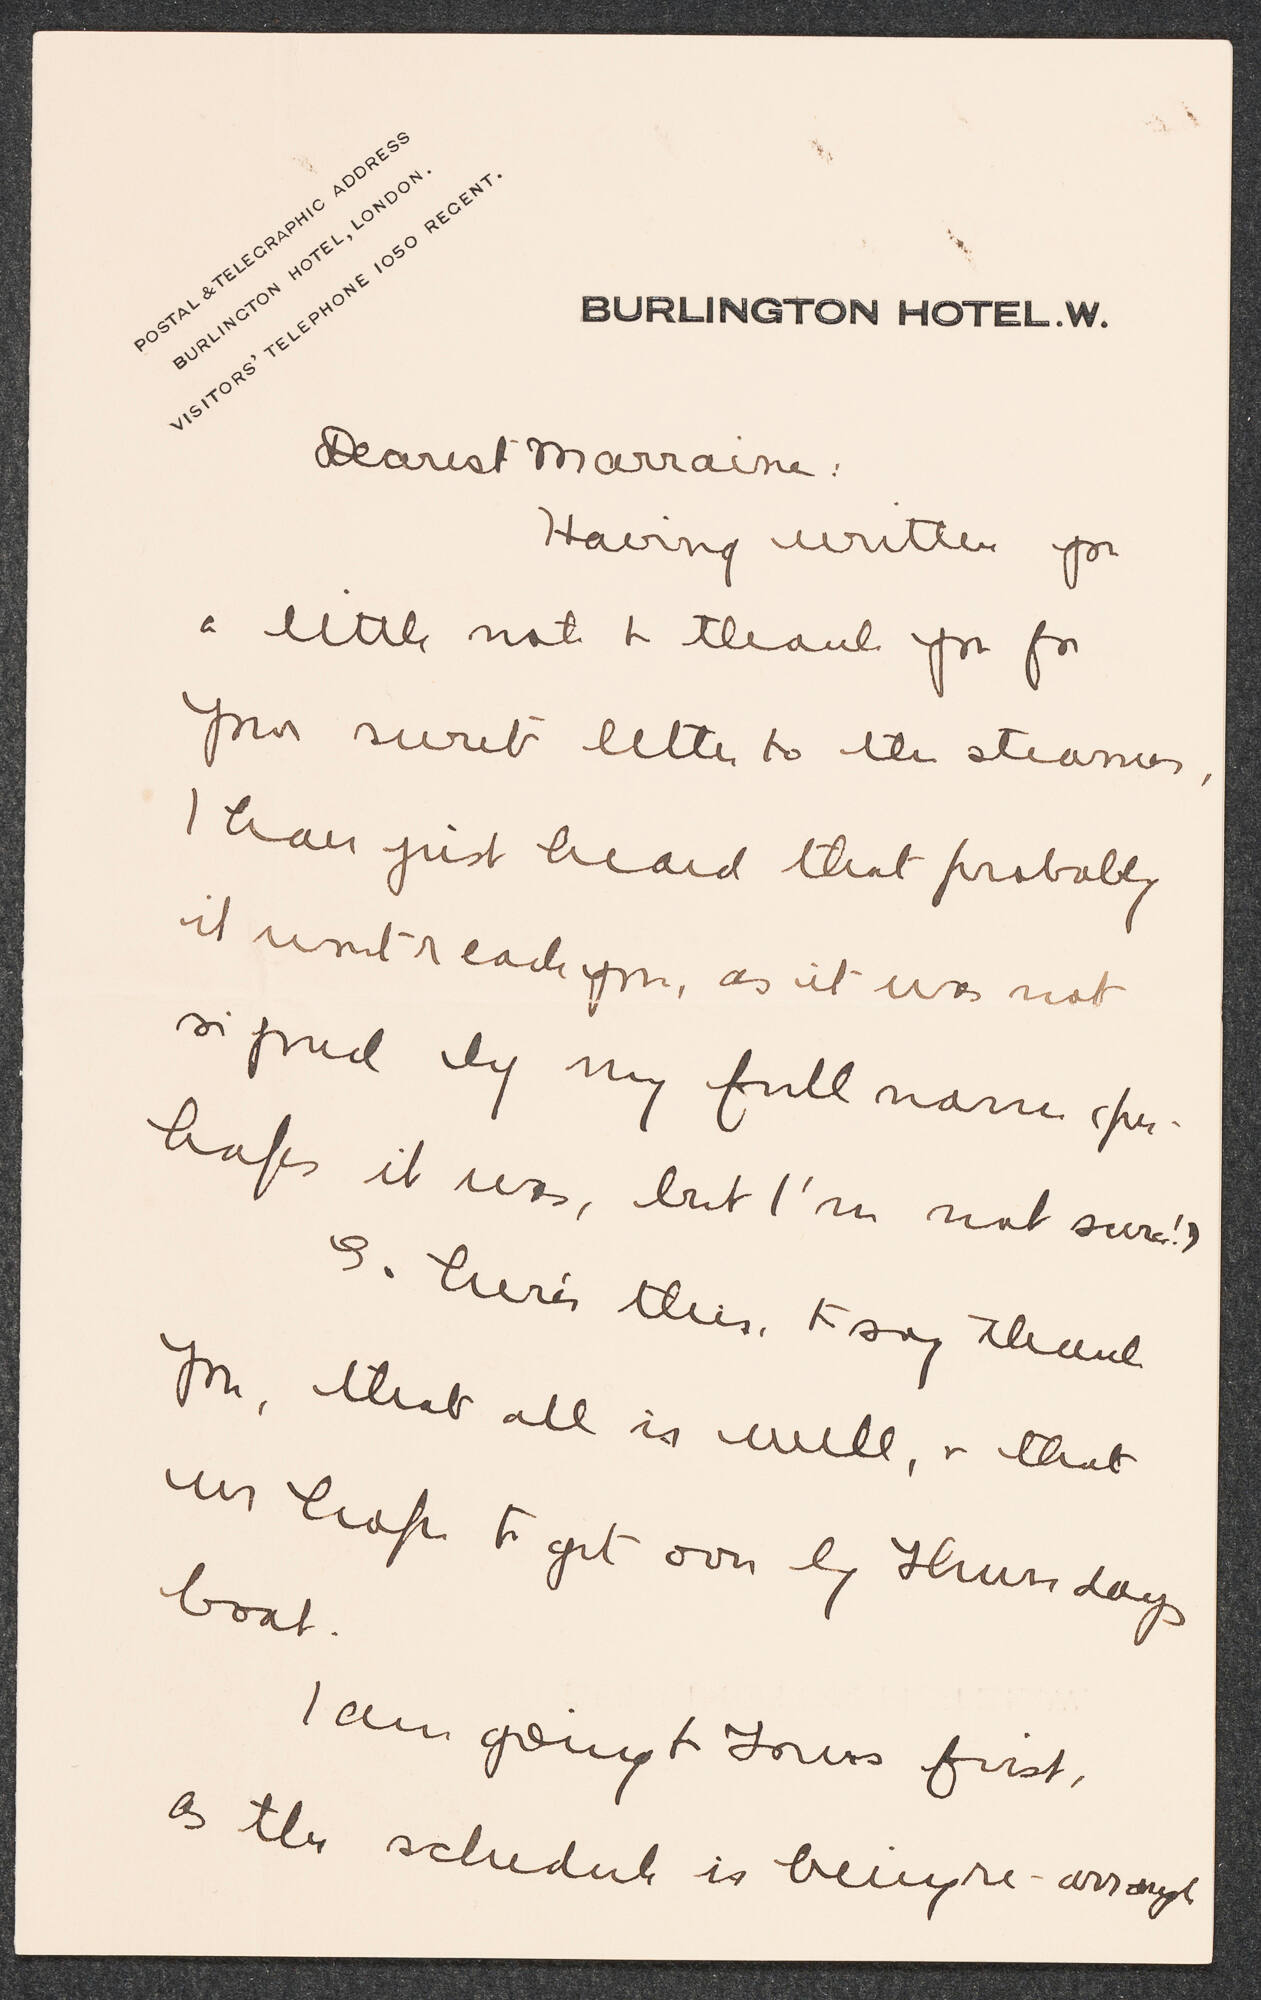 POSTAL & TELEGRAPHIC ADDRESS
BURLINGTON HOTEL, LONDON.
VISITORS' TELEPHONE 1050 REGENT.
BURLINGTON HOTEL.W.
Dearest Marraine:
Having written you
a little note to thank you for
your sweet letter to the steamer,
I have just heard that probably
it wont reach you, as it was not
signed by my full name (per-
haps it was, but I'm not sure!)
So here's this, to say thank
you, that all is well, & that
we hope to get over by Thursdays
boat.
I am going to Tours first,
as the schedule is being re-arranged